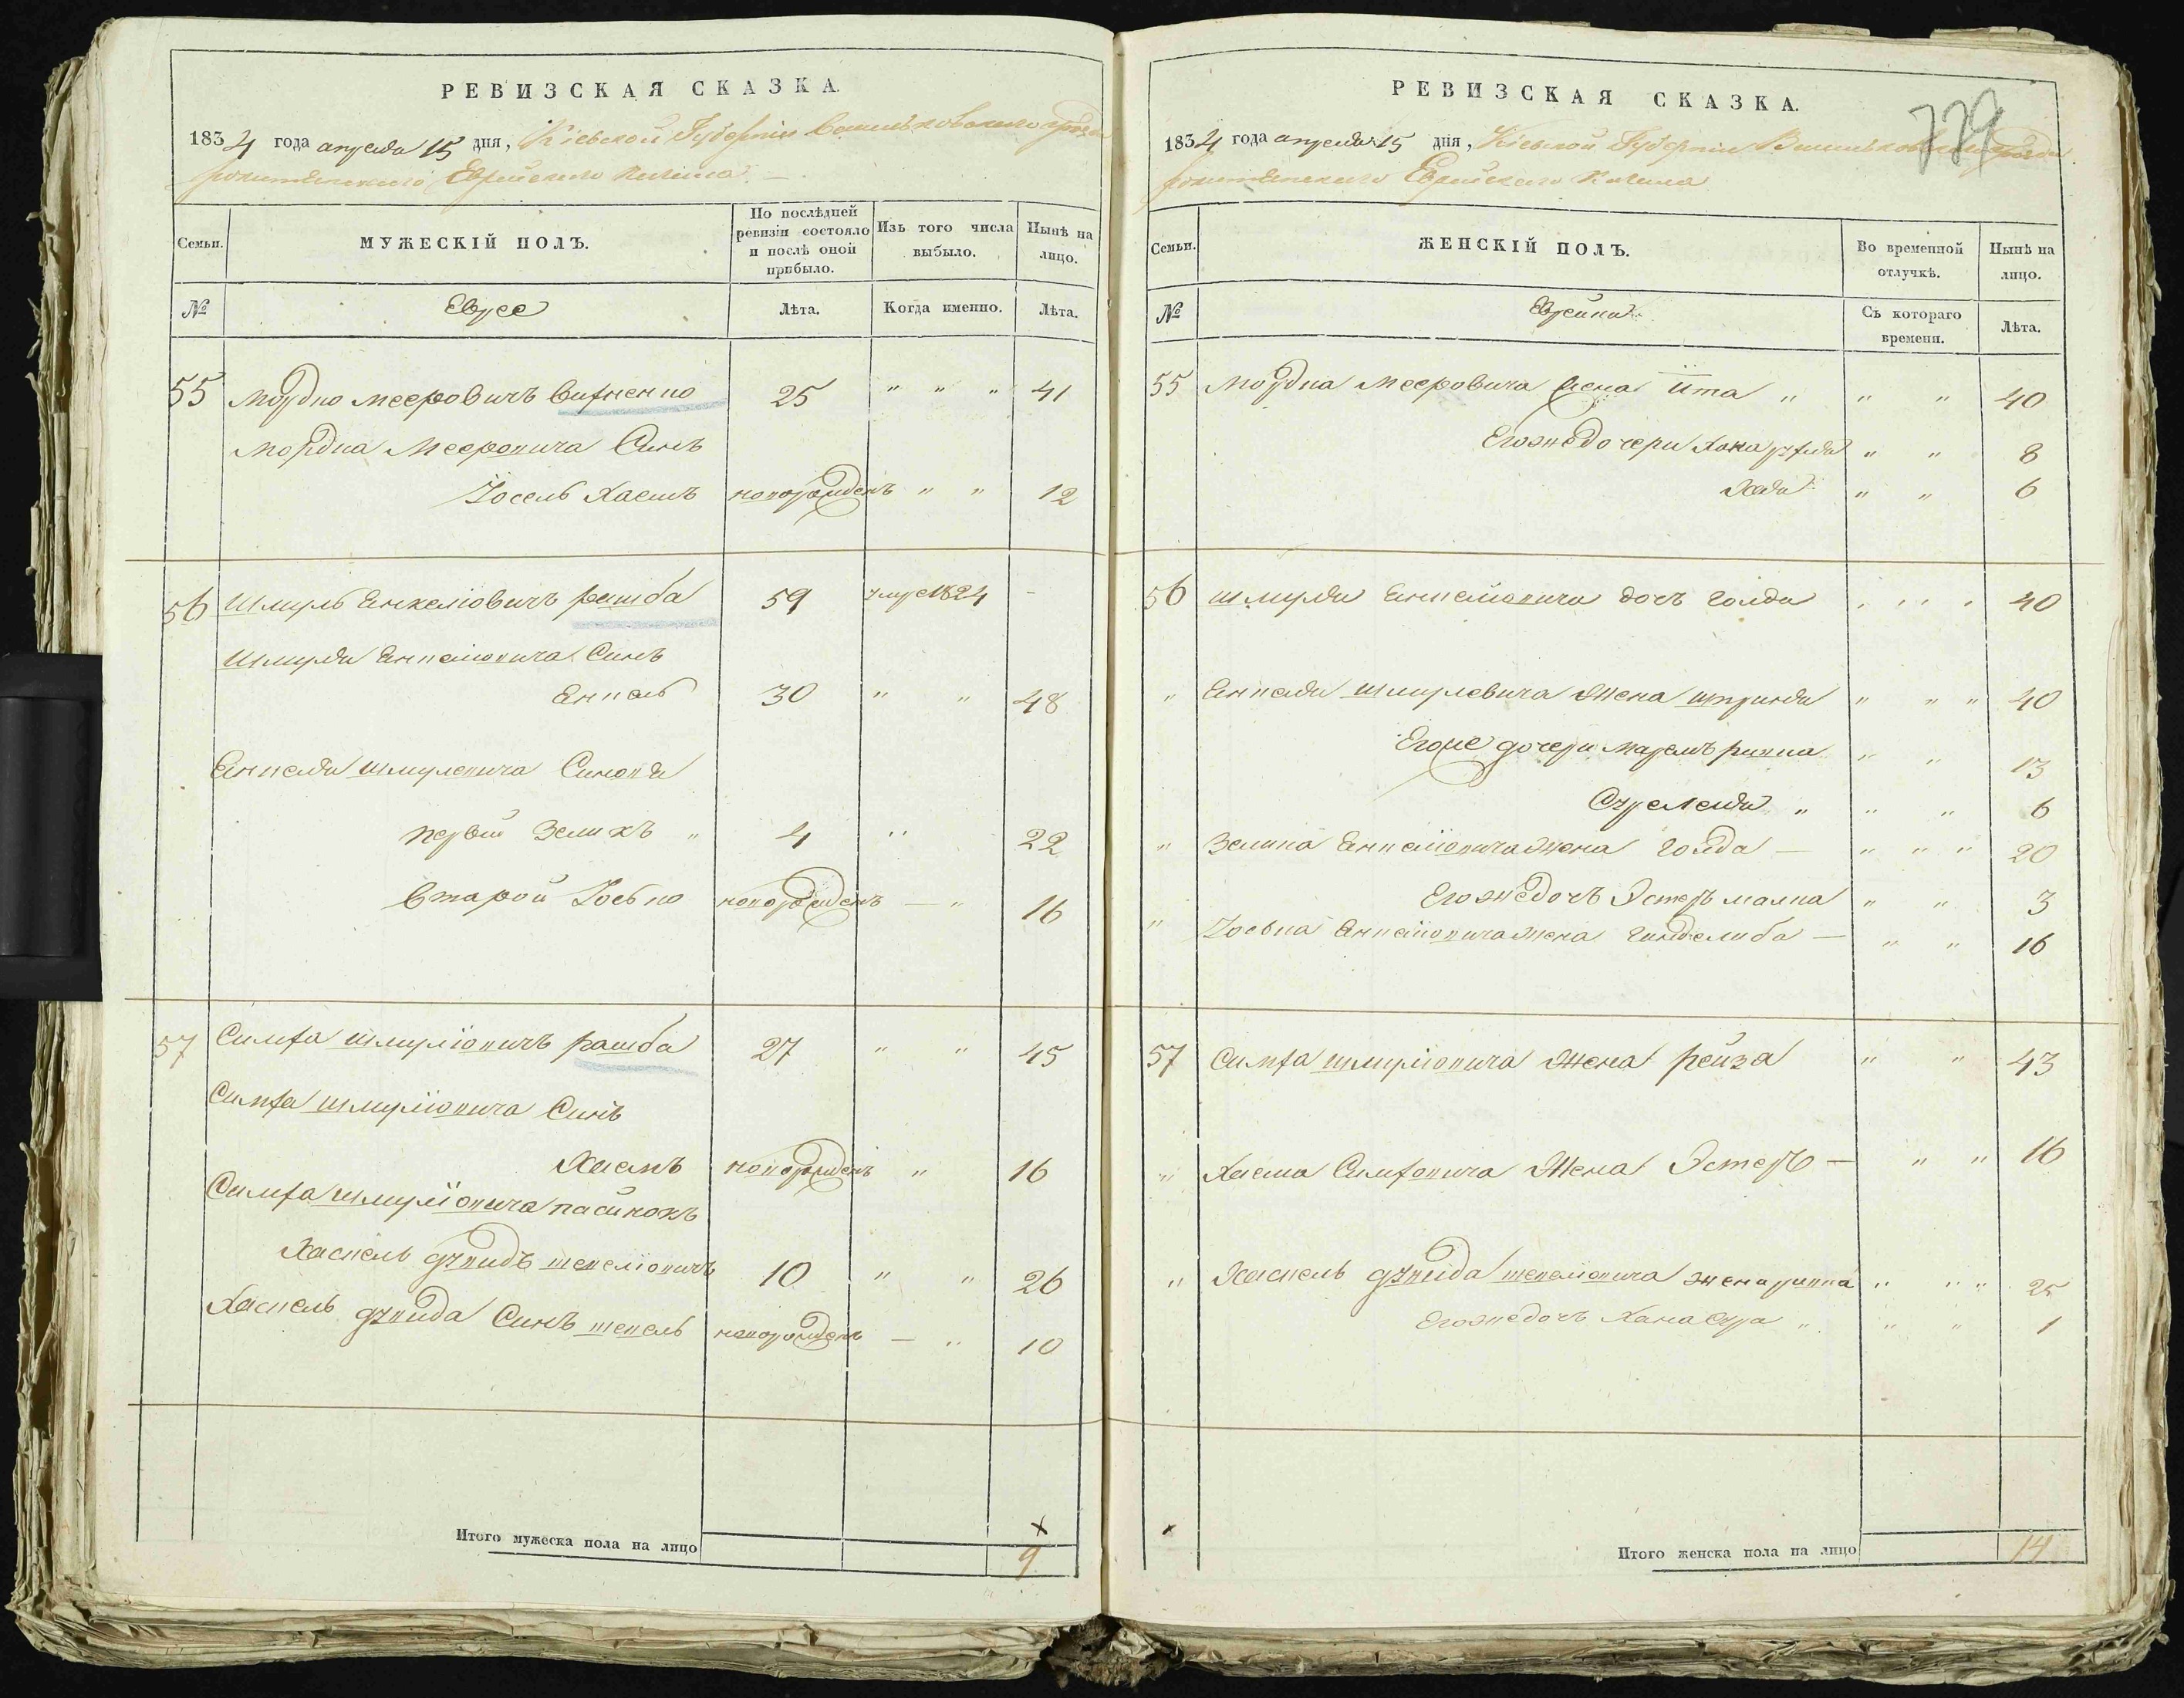 РЕВИЗСКАЯ СКАЗКА.
1834 года апреля 15 дня, Кіевской Губерніи Васильковского уезда
рокитянского Еврейского Кагала
Семьи.
МУЖЕСКІЙ ПОЛЪ.
По послѣдней ревизіи состояло и послѣ оной прибыло.
Изъ того числа выбыло.
Нынѣ на лицо.
№
Евреє
Лѣта.
Когда именно.
Лѣта.
55 Мордко Мееровичъ 25 " " " 41
Мордка Мееровича Синъ
Іосель Хаемъ новорожденъ " " 12
56 Шмуль Енкеліовичъ рашба 59 умре 1824 -
Шмуля Енкеліовича Синъ
Енкель 30 " " 48
Енкеля Шмулевича Синовя
первій Зеликъ " 4 " 22
Второй Іосько новорожденъ — " 16
57 Симха Шмуліовичъ рашба 27 " " 45
Симха Шмуліовича Синъ
Хаемъ новорожденъ " 16
Симха Шмуліовича пасинокъ
Хаскель Дувидъ 10 " " 26
Хаскель Дувида Синъ новорожденъ — " 10
Итого мужеска пола на лицо 9
РЕВИЗСКАЯ СКАЗКА.
779
1834 года апреля 15 дня, Кіевской Губерніи Васильковского уезда
рокитянского Еврейского Кагала
Семьи.
ЖЕНСКІЙ ПОЛЪ.
Во временной отлучкѣ.
Нынѣ на лицо.
№
Еврейки
Съ котораго времени.
Лѣта.
55 Мордка Мееровича жена Ита " " " 40
Егоже дочери Хана " " 8
" " 6
56 Шмуля Енкеліовича дочъ Голда " " " " 40
" Енкеля Шмулевича Жена Шпринця " " " 40
Егоже дочери ривка " " 13
" " " 6
" Зелика Енкеліовича жена Голда — " " " 20
Егоже дочъ Эстеръ малка " " 3
" Іоська Енкеліовича жена — " " 16
57 Симха Шмуліовича Жена рейза " " 43
" Хаема Симховича Жена Эстеръ — " " 16
" Хаскель Дувида жена ривка " " " 25
Егоже дочъ Хана Сура " " " 1
Итого женска пола на лицо 14